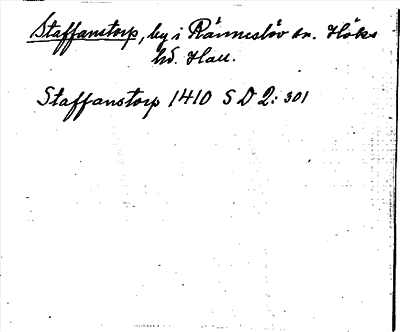 Staffanstorp, by i Ränneslöv sn. Höks
hd. Hall.
Staffanstorp 1410 SD 2: 301